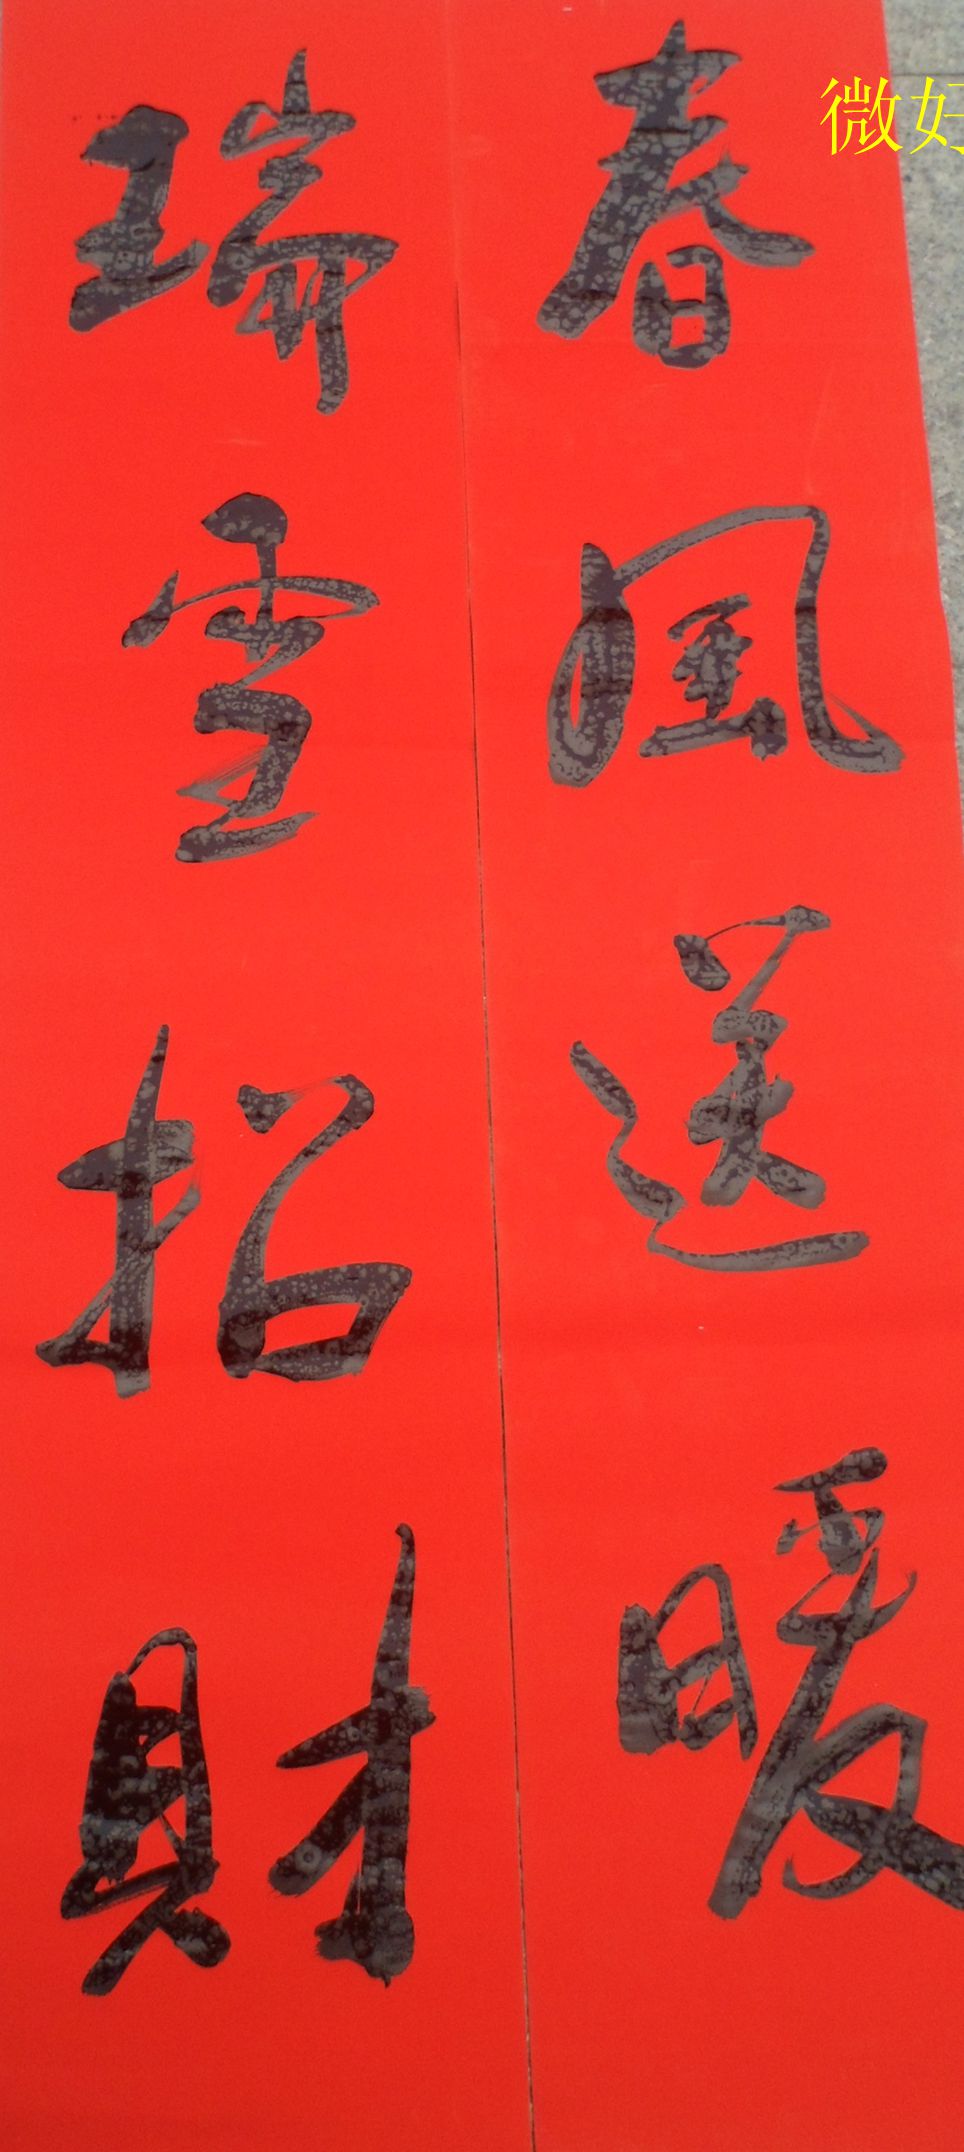 春風送暖
瑞雪招財
微好